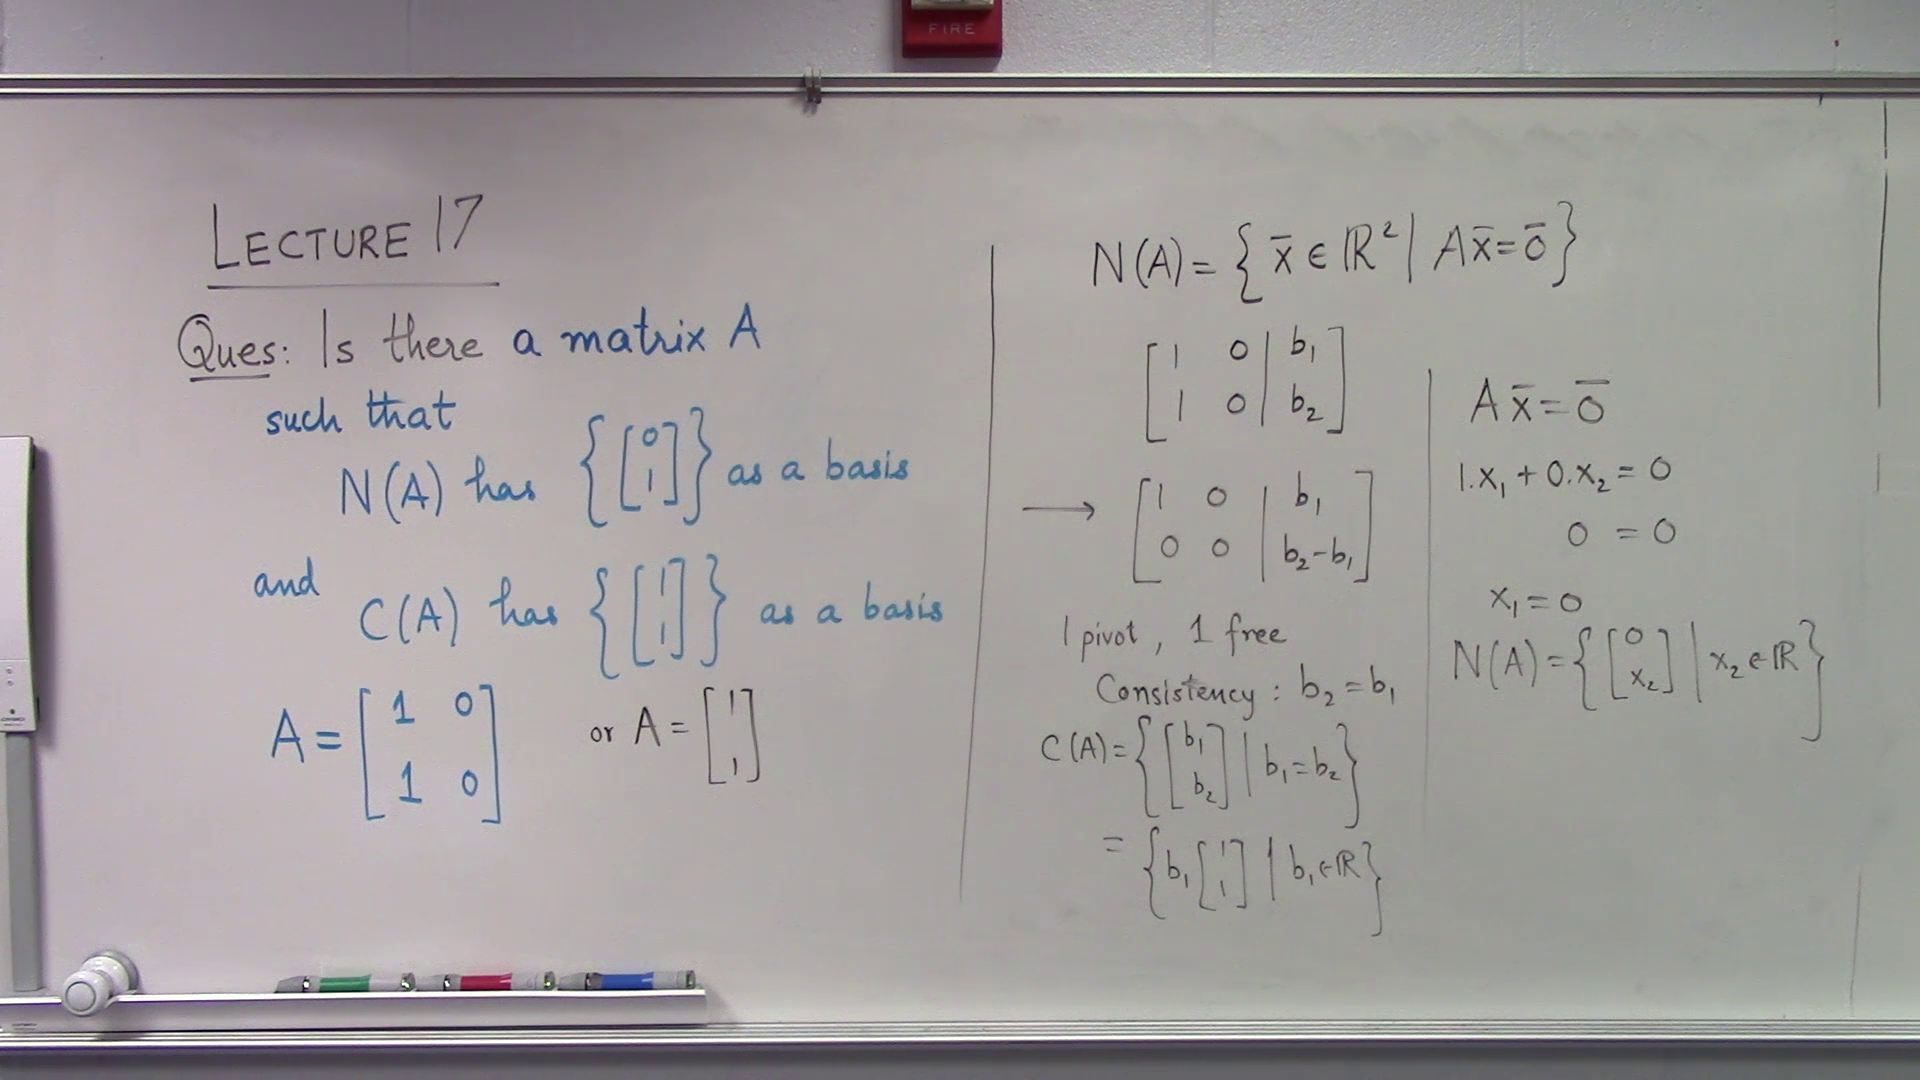 FIRE
LECTURE 17
Ques: Is there a matrix A
such that
N(A) has {[0 1]} as a basis
and
C(A) has {[1 1]} as a basis
A = [1 0
1 0]
or A = [1
1]
N(A) = { x̄ ∈ ℝ² | Ax̄ = ō }
[1 0 | b₁
1 0 | b₂]
→ [1 0 | b₁
0 0 | b₂-b₁]
1 pivot, 1 free
Consistency: b₂ = b₁
C(A) = {[b₁ b₂] | b₁ = b₂}
= {b₁ [1 1] | b₁ ∈ ℝ}
A x̄ = ō
1.x₁ + 0.x₂ = 0
0 = 0
x₁ = 0
N(A) = {[0 x₂] | x₂ ∈ ℝ}